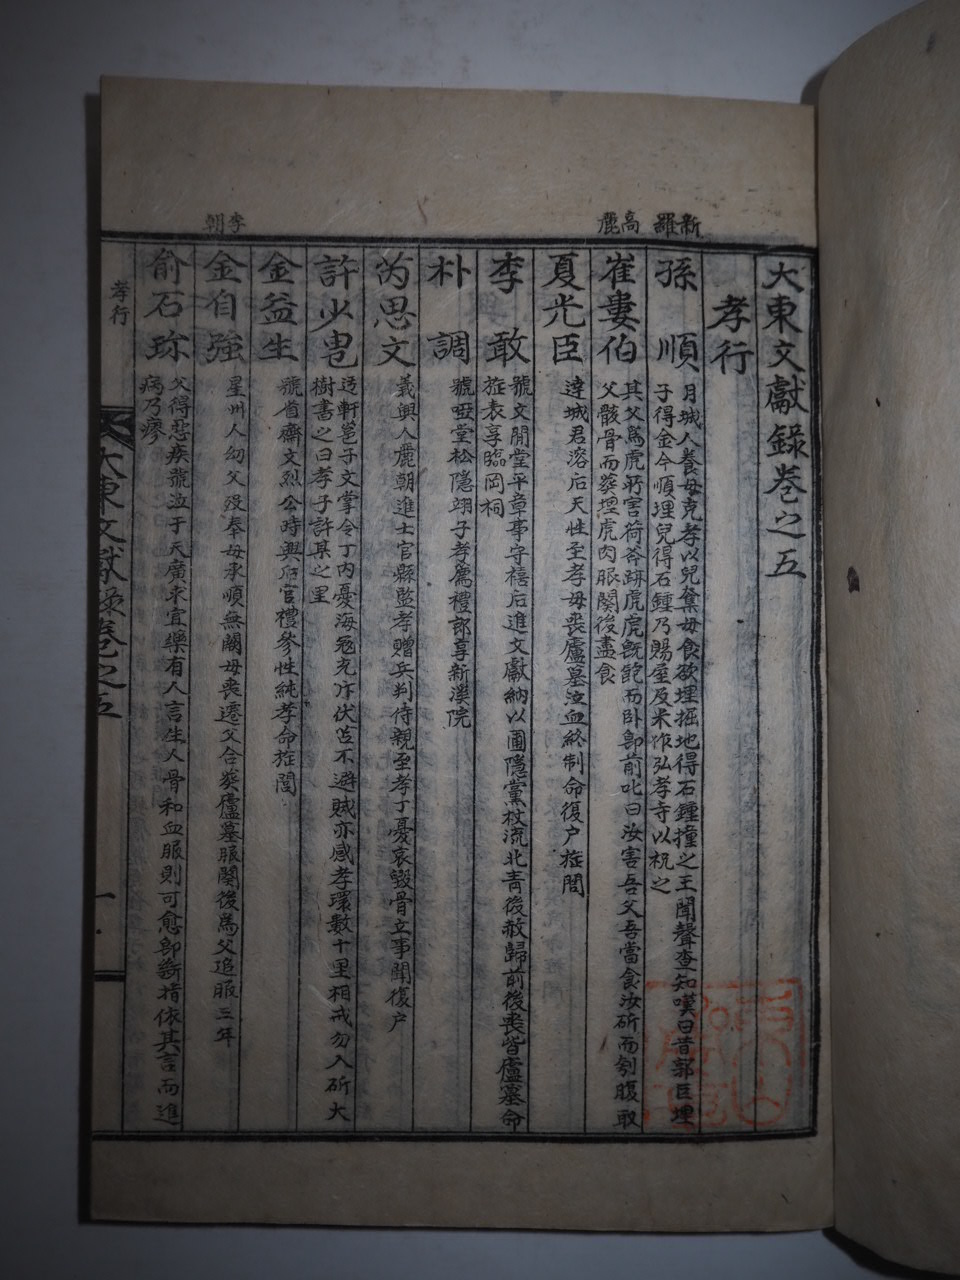 大東文獻錄卷之五
孝行
新羅
孫順
月城人養母克孝以兒奪母食欲埋掘地得石鍾撞之王聞聲查知嘆曰昔郭巨埋
子得金今順埋兒得石鍾乃賜屋及米作弘孝寺以祝之
高麗
崔婁伯
其父爲虎所害荷斧跡虎虎旣飽而臥卽前叱曰汝害吾父吾當食汝斫而刳腹取
父骸骨而葬埋虎肉服闋後盡食
夏光臣
達城君溶后天性至孝母喪廬墓泣血終制命復戶旌閭
李敢
號文閒堂平章事守禧后進文獻納以圃隱黨杖流北靑後赦歸前後喪皆廬墓命
旌表享臨岡祠
朴調
號啞堂松隱翊子孝薦禮郞享新溪院
芮思文
義興人麗朝進士官縣監孝贈兵判侍親至孝丁憂哀毁骨立事聞復戶
許少皀
迃軒邕子文掌令丁內憂海冠充斥伏苫不避賊亦感孝環數十里相戒勿入斫大
樹書之曰孝子許某之里
金益生
號省齋文烈公時興后官禮參性純孝命旌閭
李朝
金自強
星州人幼父歿奉母承順無闕母喪遷父合葬廬墓服闋後爲父追服三年
俞石珎
父得惡疾號泣于天廣求宜藥有人言生人骨和血服則可愈卽斷指依其言而進
病乃瘳
孝行
大東文獻錄卷之五
一